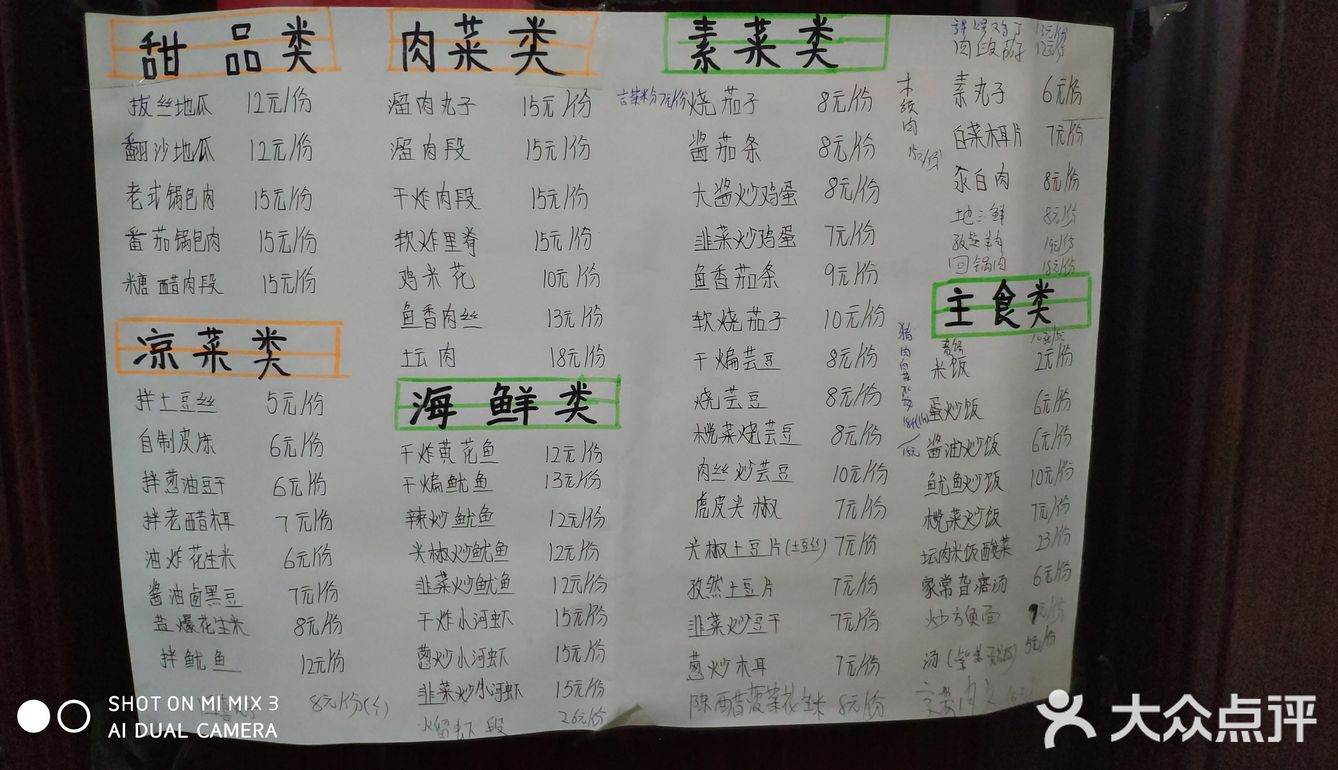 甜品类
拔丝地瓜 12元/份
翻沙地瓜 12元/份
老式锅包肉 15元/份
番茄锅包肉 15元/份
糖醋肉段 15元/份
凉菜类
拌土豆丝 5元/份
自制皮冻 6元/份
拌葱油豆干 6元/份
拌老醋木耳 7元/份
油炸花生米 6元/份
酱油卤黑豆 7元/份
盐爆花生米 8元/份
拌鱿鱼 12元/份
8元/份
肉菜类
溜肉丸子 15元/份
溜肉段 15元/份
干炸肉段 15元/份
软炸里脊 15元/份
鸡米花 10元/份
鱼香肉丝 13元/份
坛肉 18元/份
海鲜类
干炸黄花鱼 12元/份
干煸鱿鱼 13元/份
辣炒鱿鱼 12元/份
尖椒炒鱿鱼 12元/份
韭菜炒鱿鱼 12元/份
干炸小河虾 15元/份
葱炒小河虾 15元/份
韭菜炒小河虾 15元/份
水熘虾段 26元/份
素菜类
烧茄子 8元/份
酱茄条 8元/份
大酱炒鸡蛋 8元/份
韭菜炒鸡蛋 7元/份
鱼香茄条 9元/份
软烧茄子 10元/份
干煸芸豆 8元/份
烧芸豆 8元/份
榄菜烧芸豆 8元/份
肉丝炒芸豆 10元/份
虎皮尖椒 7元/份
尖椒土豆片(土豆丝) 7元/份
孜然土豆片 7元/份
韭菜炒豆干 7元/份
葱炒木耳 7元/份
陈醋菠菜花生米 8元/份
木须肉
15元/份
素丸子 6元/份
白菜木耳片 7元/份
汆白肉 8元/份
地三鲜 8元/份
回锅肉 18元/份
主食类
米饭 2元/份
蛋炒饭 6元/份
酱油炒饭 6元/份
鱿鱼炒饭 10元/份
榄菜炒饭 7元/份
坛肉米饭酸菜 23/份
家常疙瘩汤 6元/份
炒方便面
汤 5元/份
SHOT ON MI MIX 3
AI DUAL CAMERA
大众点评